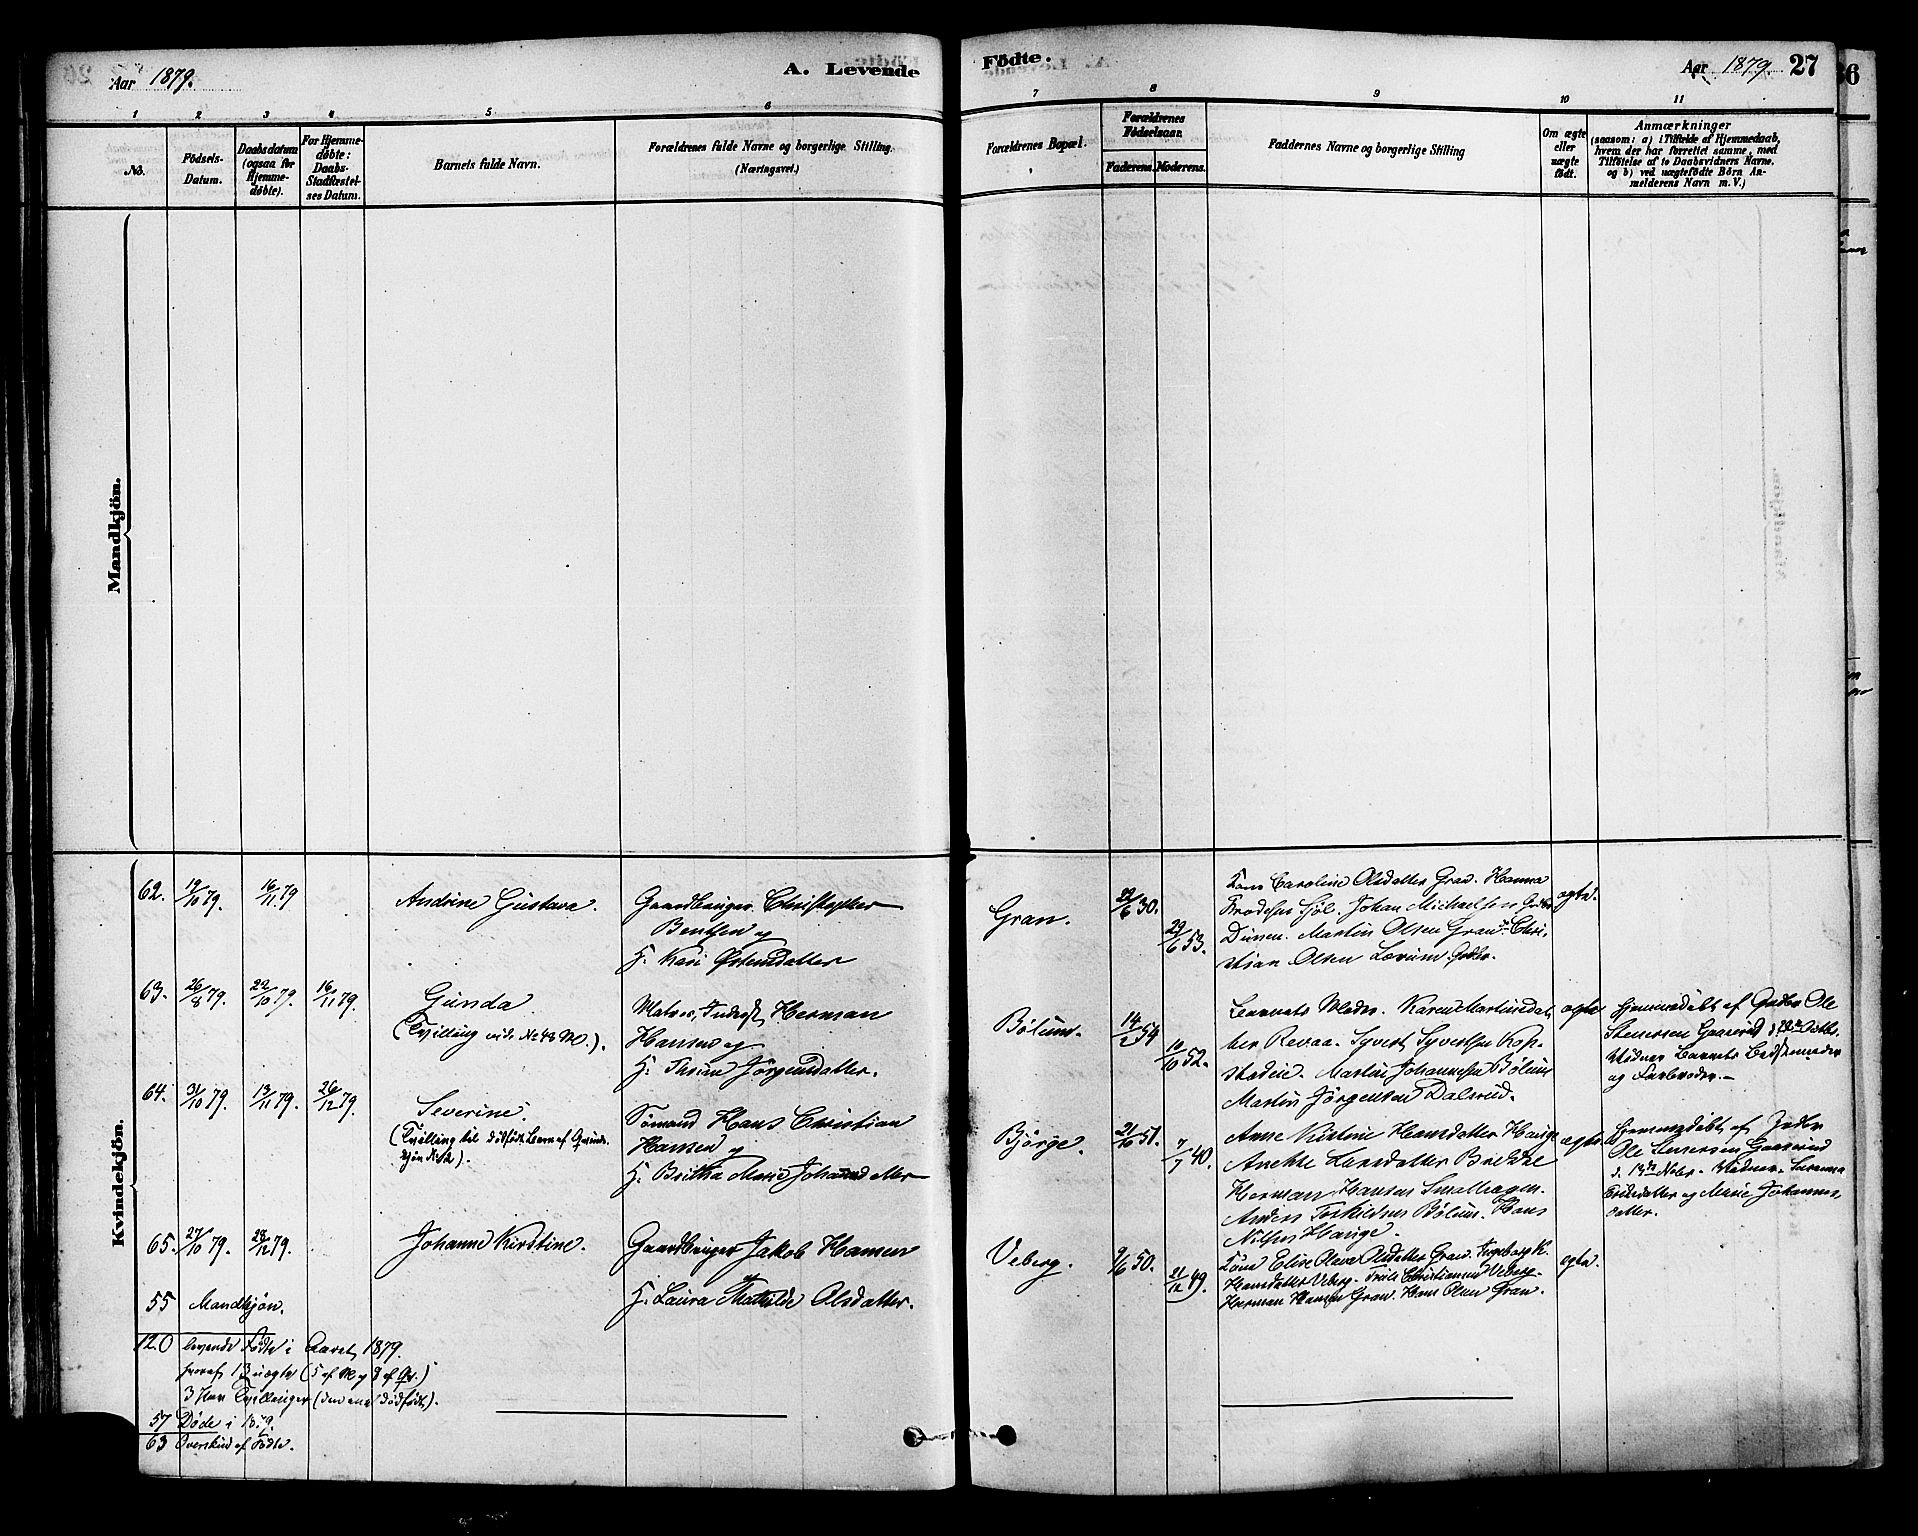 Aar 1879.
A. Levende
Födte.
Aar 1879. 27
1 2 3 4 5 6 7 8 9 10 11
No.
Födsels-
Datum.
Daabsdatum
(ogsaa for
Hjemme-
döbte).
For Hjemme-
döbte:
Daabs-
Stadfæstel-
ses Datum.
Barnets fulde Navn.
Forældrenes fulde Navne og borgerlige Stilling.
(Næringsvei.)
Forældrenes Bopæl.
Forældrenes
Födselsaar.
Faderens. Moderens.
Faddernes Navne og borgerlige Stilling
Om ægte
eller
uægte
födt.
Anmærkninger
(saasom: a) i Tilfælde af Hjemmedaab,
hvem der har forrettet samme, med
Tilföielse af to Daabsvidners Navne,
og b) ved uægtefödte Börn An-
melderens Navn m. V.)
Mandkjön.
Kvindekjön.
62. 19/10 79. 16/11 79
Andrine Gustava.
Gaardbruger Christopher
Bentsen og
H. Kari Østensdatter
Gran.
22/6 30.
29/6 53.
Caroline Olsdatter Gran. Hanna
Johan Michaelsen
Martin Olsen Gran. Chri-
stian Olsen
ægte.
63. 26/8 79. 22/10 79. 16/11 79
Gunda
(Tvilling vide No 48 M.).
Herman
Hansen og
H. Jörgensdatter.
Bölum.
14/2 54
10/10 52.
Barnets Moder. Karen Martinsdat-
ter Revaa. Syvert Syvertsen Rop-
stadeie. Martin Johannesen Bölum
Martin Jörgensen Dalsrud.
ægte
Hjemmedöbt af Ole
Stenersen Gaasrud
Vidner Barnets Bedstemoder
og Farbroder.
64. 31/10 79. 13/11 79. 26/12 79.
Severine.
(Tvilling til dödfödt Barn af Qvinde-
kjön No 2).
Sömand Hans Christian
Hansen og
H. Britha Marie Johannesdatter
Bjørge.
21/10 51.
7/7 40.
Anne Kistine Hansdatter Hauge
Anette Larsdatter Brekke
Herman Hansen Smalhagen.
Anders Torkildsen Bölum. Hans
Nilsen Hauge.
ægte
Hjemmedöbt af
Ole Stenersen Gaasrud
d. 13de Novbr. Vidner
og Marie Johannes-
datter.
65. 27/10 79. 28/12 79.
Johanne Kirstine.
Gaardbruger Jakob Hansen
H. Laura Mathilde Olsdatter.
Veberg.
9/6 50.
21/12 49.
Elise Olava Olsdatter Gran. Ingeborg K.
Hansdatter Veberg. Christiansen Veberg.
Herman Hansen Gran. Hans Olsen Gran.
ægte.
55 Mandkjön.
120 levende Födte i Aaret 1879.
hvoraf 13 uægte (5 af M. og 8 af Qv.)
3 Par Tvillinger (den ene dödfödt).
57 Döde i 1879.
63 Overskud af Födte.